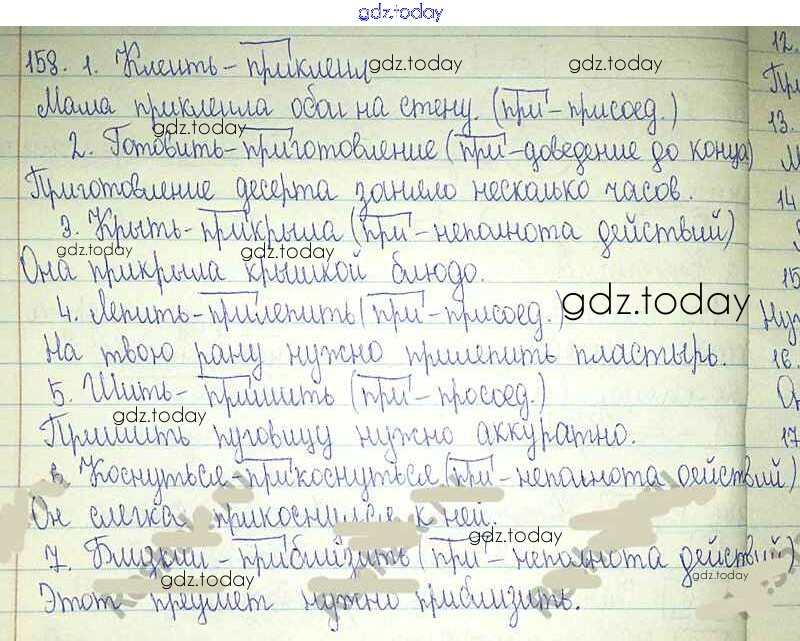 gdz.today
158. 1. Клеить - приклеил gdz.today gdz.today
Мама приклеила обои на стену. (при - присоед.)
gdz.today
2. Готовить - приготовление (при - доведение до конца)
Приготовление десерта заняло несколько часов.
3. Крыть - прикрыла (при - неполнота действий)
gdz.today gdz.today
Она прикрыла крышкой блюдо.
4. Лепить - прилепить (при - присоед.) gdz.today
На твою рану нужно прилепить пластырь.
5. Шить - пришить (при - просоед.)
gdz.today
Пришить пуговицу нужно аккуратно.
6. Коснуться - прикоснуться (при - неполнота действий)
Он слегка прикоснулся к ней.
gdz.today
7. Близкий - приблизить (при - неполнота действий)
gdz.today gdz.today
Этот предмет нужно приблизить.
12.
При
13.
М
14
15
Нуж
16.
Он
17